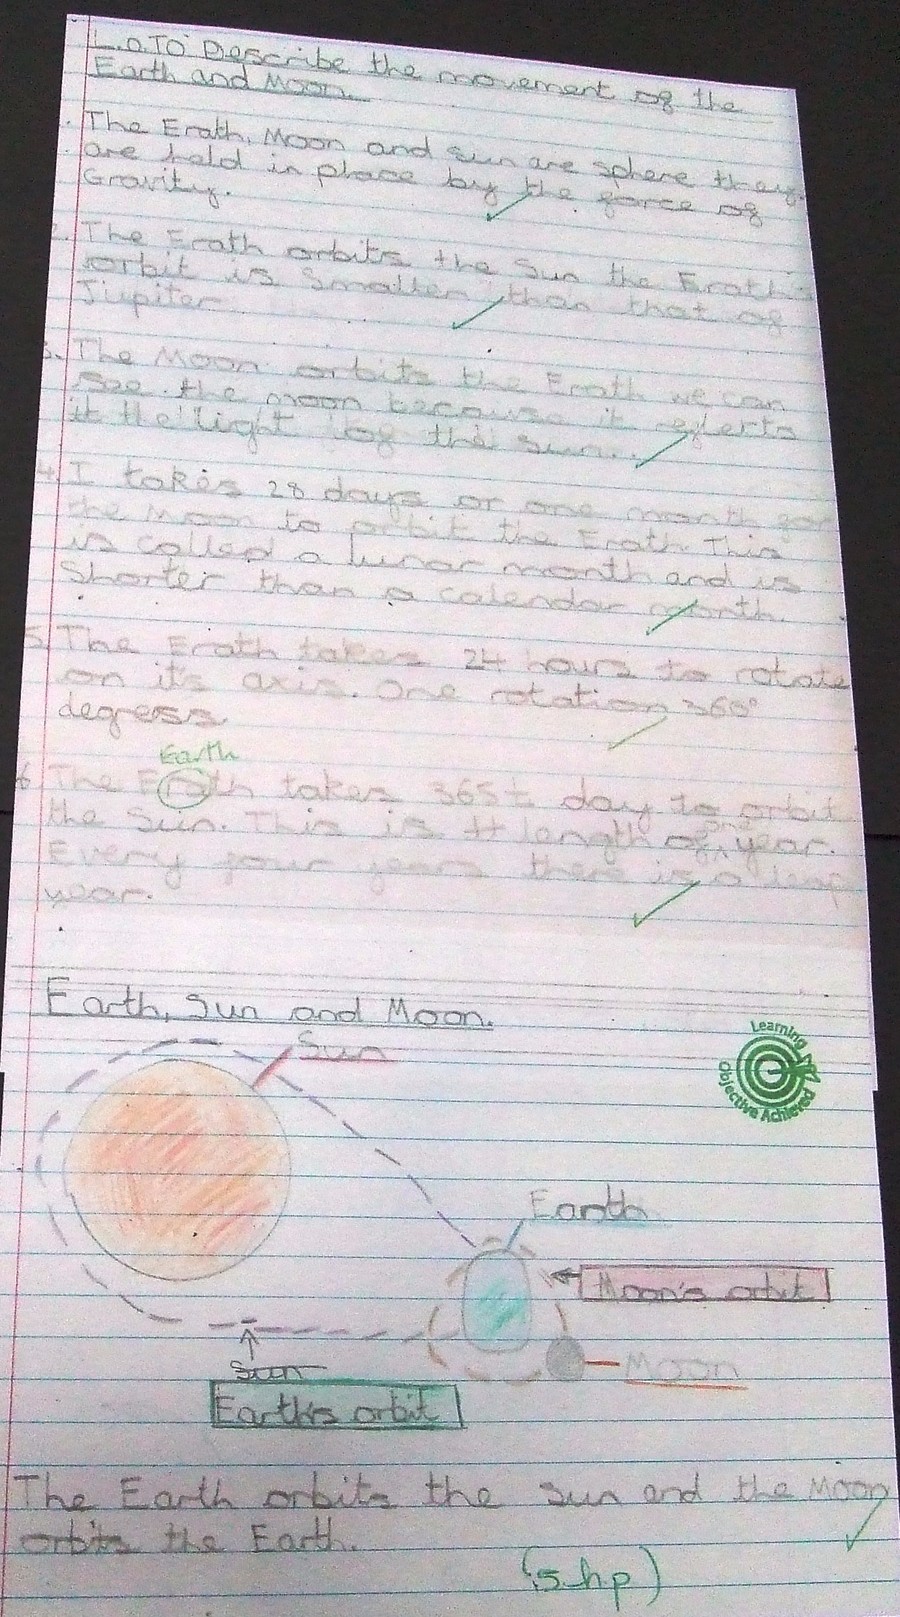 L.O TO Describe the movement of the
Earth and Moon.
. The Erath, Moon and sun are sphere they
are held in place by the force of
Gravity.
2. The Erath orbits the Sun the Erath's
orbit is Smaller than that of
Jiupiter
3. The Moon orbits the Erath we can
see the moon because it reflerts
it the light of the sun.
4. I takes 28 days or one month for
the Moon to orbit the Erath. This
is called a lunar month and is
Shorter than a calendar month.
5. The Erath takes 24 hours to rotate
on it's axis. One rotation 360°
degress.
Earth
6 The Erath takes 365¼ day to orbit
the Sun. This is length of one year.
Every four years there is a leap
year.
Earth, Sun and Moon.
Sun
Learning
Objective Achieved
Earth
Moon's orbit
Moon
Sun
Earth's orbit
The Earth orbits the sun and the Moon
orbits the Earth.
(5 hp)